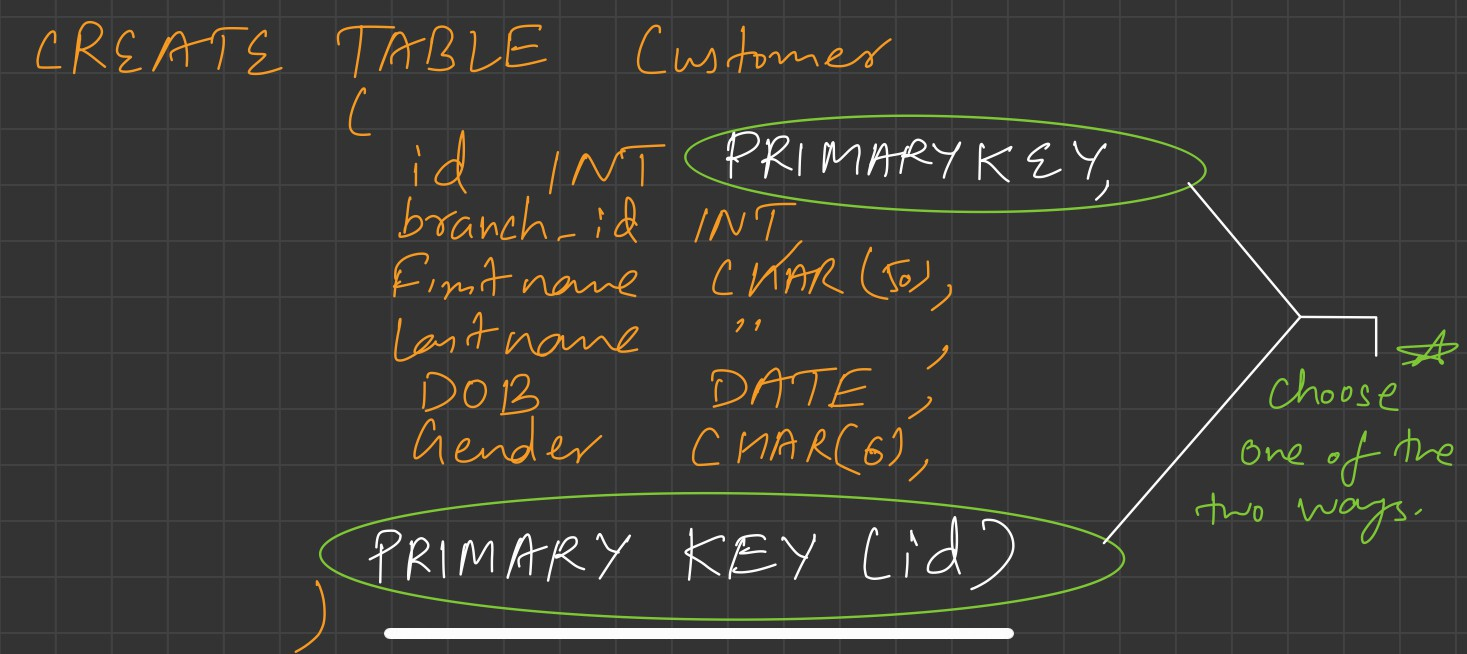 CREATE TABLE Customer
(
id INT PRIMARY KEY,
branch_id INT,
Firstname CHAR(50),
Lastname " ,
DOB DATE ,
Gender CHAR(6),
PRIMARY KEY (id)
)
Choose
one of the
two ways.